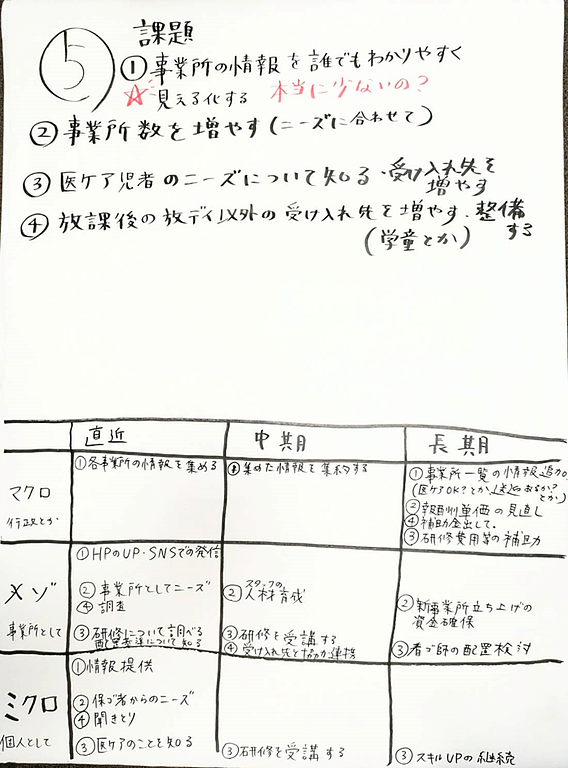 ⑤
課題
①事業所の情報を誰でもわかりやすく
☆見える化する 本当に少ないの?
②事業所数を増やす(ニーズに合わせて)
③医ケア児者のニーズについて知る・受け入れ先を
増やす
④放課後の放デイ以外の受け入れ先を増やす.整備
する
(学童とか)
直近 中期 長期
マクロ
行政とか
①各事業所の情報を集める
①集めた情報を集約する
①事業所一覧の情報追加。
(医ケアOK?とか、送迎あるか?
とか)
②報酬単価の見直し
④補助金出して.
③研修費用等の補助
メゾ
事業所として
①HPのUP・SNSでの発信
②事業所としてニーズ
④調査
③研修について調べる
配置基準について知る
②スタッフの
人材育成
③研修を受講する
④受け入れ先と協力連携
②新事業所立ち上げの
資金確保
③看ゴ師の配置検討
ミクロ
個人として
①情報提供
②保ゴ者からのニーズ
④聞きとり
③医ケアのことを知る
③研修を受講する
③スキルUPの継続